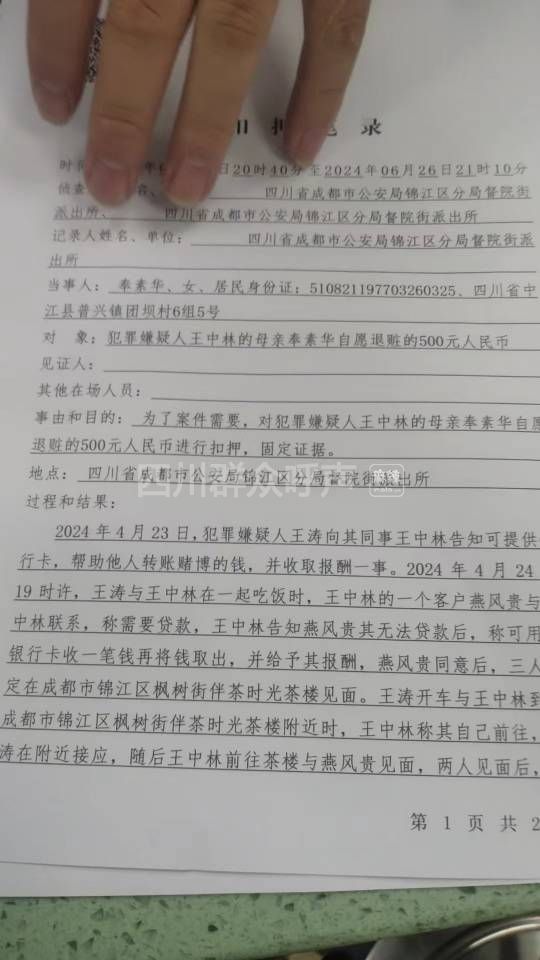 押笔录
20时40分至2024年06月26日21时10分
侦查 名、 四川省成都市公安局锦江区分局督院街
派出所、 四川省成都市公安局锦江区分局督院街派出所
记录人姓名、单位: 四川省成都市公安局锦江区分局督院街派
出所
当事人: 奉素华、女、居民身份证:510821197703260325、四川省中
江县普兴镇团坝村6组5号
对 象:犯罪嫌疑人王中林的母亲奉素华自愿退赃的500元人民币
见证人:
其他在场人员:
事由和目的:为了案件需要,对犯罪嫌疑人王中林的母亲奉素华自愿
退赃的500元人民币进行扣押,固定证据。
地点: 四川省成都市公安局锦江区分局督院街派出所
过程和结果:
2024年4月23日,犯罪嫌疑人王涛向其同事王中林告知可提供
行卡,帮助他人转账赌博的钱,并收取报酬一事。2024年4月24
19时许,王涛与王中林在一起吃饭时,王中林的一个客户燕风贵与
中林联系,称需要贷款,王中林告知燕风贵其无法贷款后,称可用
银行卡收一笔钱再将钱取出,并给予其报酬,燕风贵同意后,三人
定在成都市锦江区枫树街伴茶时光茶楼见面。王涛开车与王中林到
成都市锦江区枫树街伴茶时光茶楼附近时,王中林称其自己前往,
涛在附近接应,随后王中林前往茶楼与燕风贵见面,两人见面后,
第1页共2
四川群众呼声